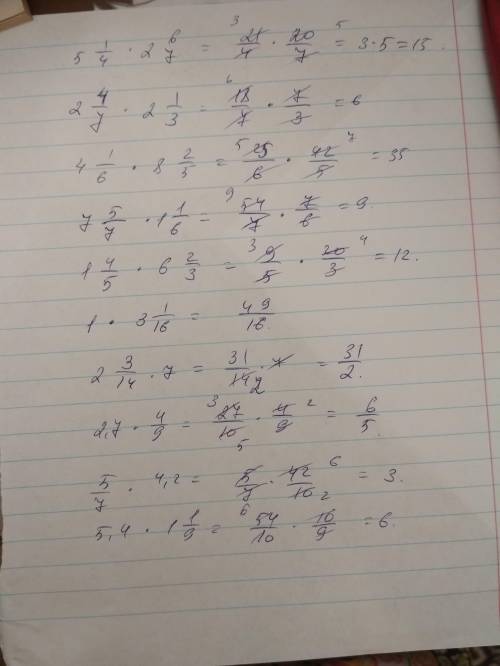 5 1/4 · 2 6/7 = 3 21/4 · 20/7 5 = 3·5=15.
2 4/7 · 2 1/3 = 6 18/7 · 7/3 = 6
4 1/6 · 8 2/5 = 5 25/6 · 42/5 7 = 35
7 5/7 · 1 1/6 = 9 54/7 · 7/6 = 9
1 4/5 · 6 2/3 = 3 9/5 · 20/3 4 = 12.
1 · 3 1/16 = 49/16.
2 3/14 · 7 = 31/14 2 · 7 = 31/2.
2,7 · 4/9 = 3 27/10 5 · 4/9 2 = 6/5.
5/7 · 4,2 = 5/7 · 42/10 6 2 = 3.
5,4 · 1 1/9 = 6 54/10 · 10/9 = 6.